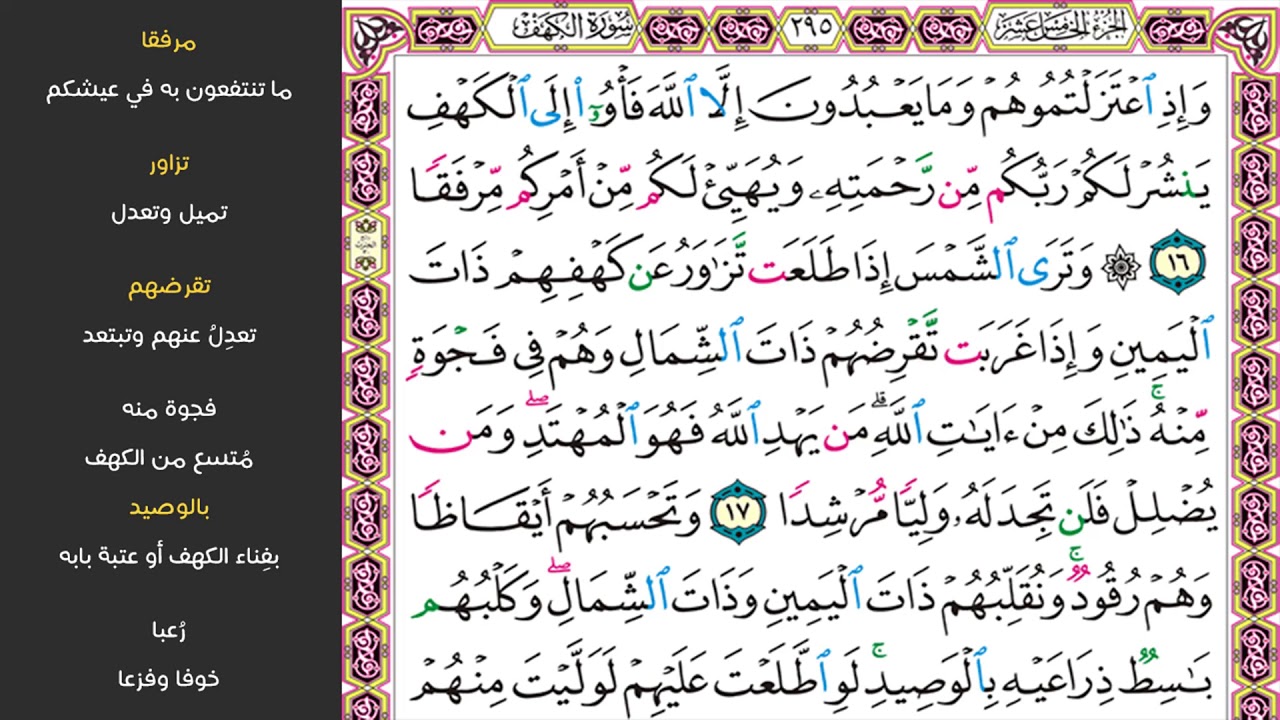 الجزء الخامس عشر
٢٩٥
سورة الكهف
وَإِذِ ٱعْتَزَلْتُمُوهُمْ وَمَا يَعْبُدُونَ إِلَّا ٱللَّهَ فَأْوُۥٓا۟ إِلَى ٱلْكَهْفِ
يَنشُرْ لَكُمْ رَبُّكُم مِّن رَّحْمَتِهِۦ وَيُهَيِّئْ لَكُم مِّنْ أَمْرِكُم مِّرْفَقًا
١٦ ۞ وَتَرَى ٱلشَّمْسَ إِذَا طَلَعَت تَّزَٰوَرُ عَن كَهْفِهِمْ ذَاتَ
ٱلْيَمِينِ وَإِذَا غَرَبَت تَّقْرِضُهُمْ ذَاتَ ٱلشِّمَالِ وَهُمْ فِى فَجْوَةٍ
مِّنْهُ ۚ ذَٰلِكَ مِنْ ءَايَٰتِ ٱللَّهِ ۗ مَن يَهْدِ ٱللَّهُ فَهُوَ ٱلْمُهْتَدِ ۖ وَمَن
يُضْلِلْ فَلَن تَجِدَ لَهُۥ وَلِيًّا مُّرْشِدًا ١٧ وَتَحْسَبُهُمْ أَيْقَاظًا
وَهُمْ رُقُودٌ ۚ وَنُقَلِّبُهُمْ ذَاتَ ٱلْيَمِينِ وَذَاتَ ٱلشِّمَالِ ۖ وَكَلْبُهُم
بَٰسِطٌ ذِرَاعَيْهِ بِٱلْوَصِيدِ ۚ لَوِ ٱطَّلَعْتَ عَلَيْهِمْ لَوَلَّيْتَ مِنْهُمْ
مرفقا
ما تنتفعون به في عيشكم
تزاور
تميل وتعدل
تقرضهم
تعدِلُ عنهم وتبتعد
فجوة منه
مُتسع من الكهف
بالوصيد
بفِناء الكهف أو عتبة بابه
رُعبا
خوفا وفزعا